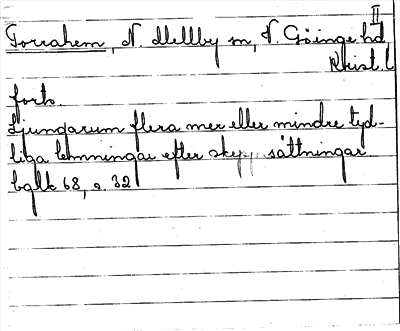 II
Torrahem, N. Mellby sn, V. Göinge hd,
Krist. l
forts.
Ljungarum flera mer eller mindre tyd-
liga lämningar efter skeppssättningar
bglk 68, s. 32